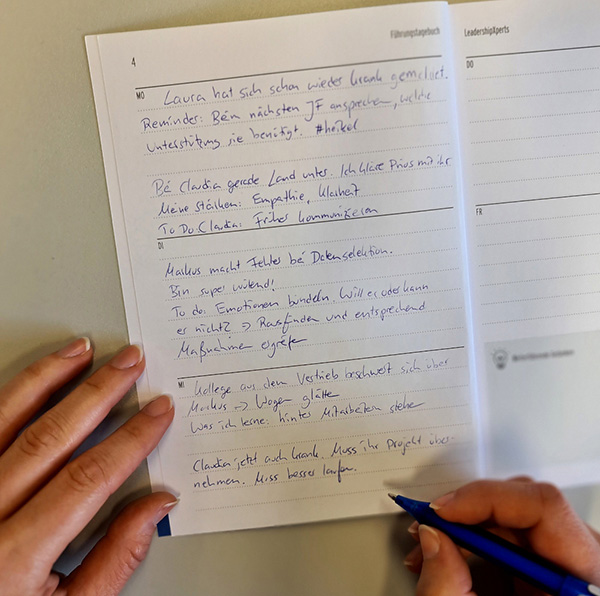 4
Führungstagebuch
MO
Laura hat sich schon wieder krank gemeldet.
Reminder: Beim nächsten JF ansprechen, welche
Unterstützung sie benötigt. #heikel
Bei Claudia gerade Land unter. Ich kläre Prios mit ihr
Meine Stärken: Empathie, Klarheit
To Do Claudia: Früher kommunizieren
DI
Markus macht Fehler bei Datenselektion.
Bin super wütend!
To do: Emotionen bündeln. Will er oder kann
er nicht? → Rausfinden und entsprechend
Maßnahmen ergreifen
MI
Kollege aus dem Vertrieb beschwert sich über
Markus → Wogen glätten
Was ich lerne: hinter Mitarbeitern stehen
Claudia jetzt auch krank. Muss ihr Projekt über-
nehmen. Muss besser laufen.
LeadershipXperts
DO
FR